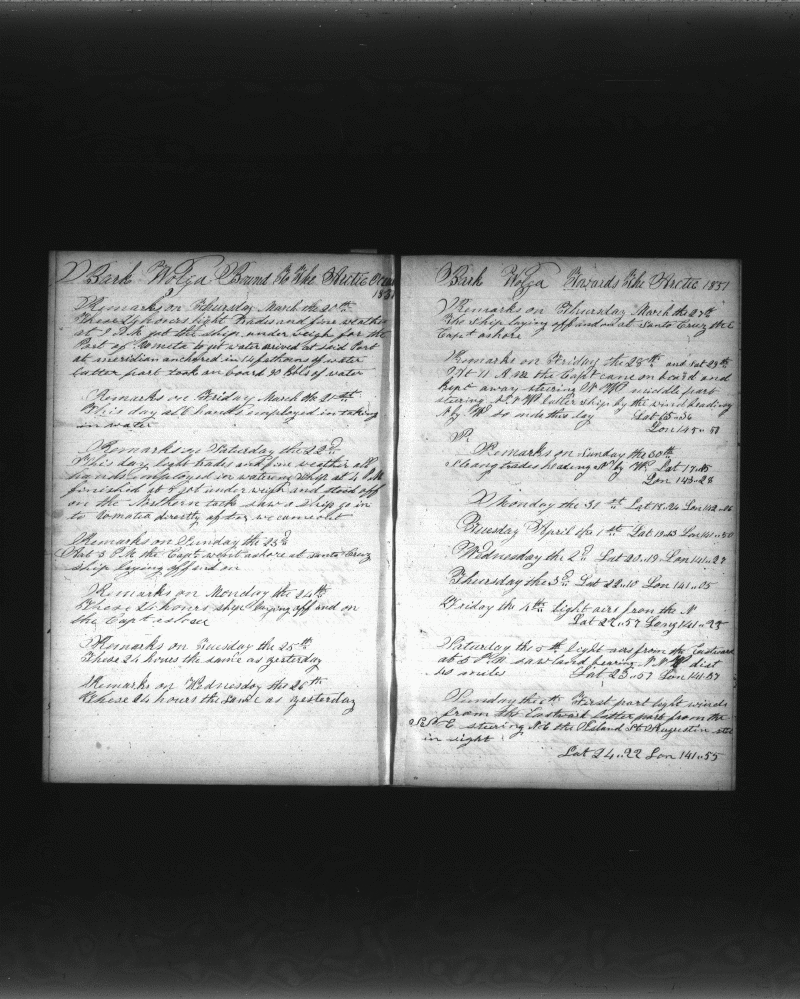 Bark Wolga Bound To The Arctic Ocean
1851
Remarks on Thursday March the 20th
These 24 hours light Trades and fine weather
at 9 A.M. got the ship under weigh for the
Port of to get water arived at said Port
at meridian anchored in 14 fathoms of water
latter part took on board 90 Bbls of water
Remarks on Friday March the 21th
This day all hands employed in taking
in water
Remarks on Saturday the 22d
This day light trades and fine weather all
hands employed in watering ship at 4 P.M.
finished at got under weigh and stood off
on the Northern tack saw a ship go in
to directly after we came out
Remarks on Sunday the 23d
at 3 P.M. the Capt went ashore at Santa Cruz
ship laying off and on
Remarks on Monday the 24th
These 24 hours ship laying off and on
the Capt ashore
Remarks on Tuesday the 25th
These 24 hours the same as yesterday
Remarks on Wednesday the 26th
These 24 hours the same as yesterday
Bark Wolga Towards The Arctic 1851
Remarks on Thursday March the 27th
The ship laying off and on at Santa Cruz the
Capt ashore
Remarks on Friday the 28th and Sat 29th
At 11 A.M. the Capt came on board and
kept away steering N W middle part
steering N W latter ship by the wind heading
N by W so ends this day Lat 15-36
Lon 145-51
Remarks on Sunday the 30th
Strong trades heading N by W. Lat 17-15
Lon 143-28
Monday the 31st Lat 18-24 Lon 142-
Tuesday April the 1th Lat 19-13 Lon 141-50
Wednesday the 2d Lat 20-19 Lon 141-27
Thursday the 3d Lat 22-10 Lon 141-05
Friday the 4th light airs from the N
Lat 22-57 Long 141-23
Saturday the 5th light airs from the Eastward
at 5 P.M. saw land bearing N N W dist
miles Lat 23-57 Lon 141-37
Sunday the 6th First part light winds
from the Eastward Latter part from the
steering N E the Island St Augustin
in sight
Lat 24-22 Lon 141-55